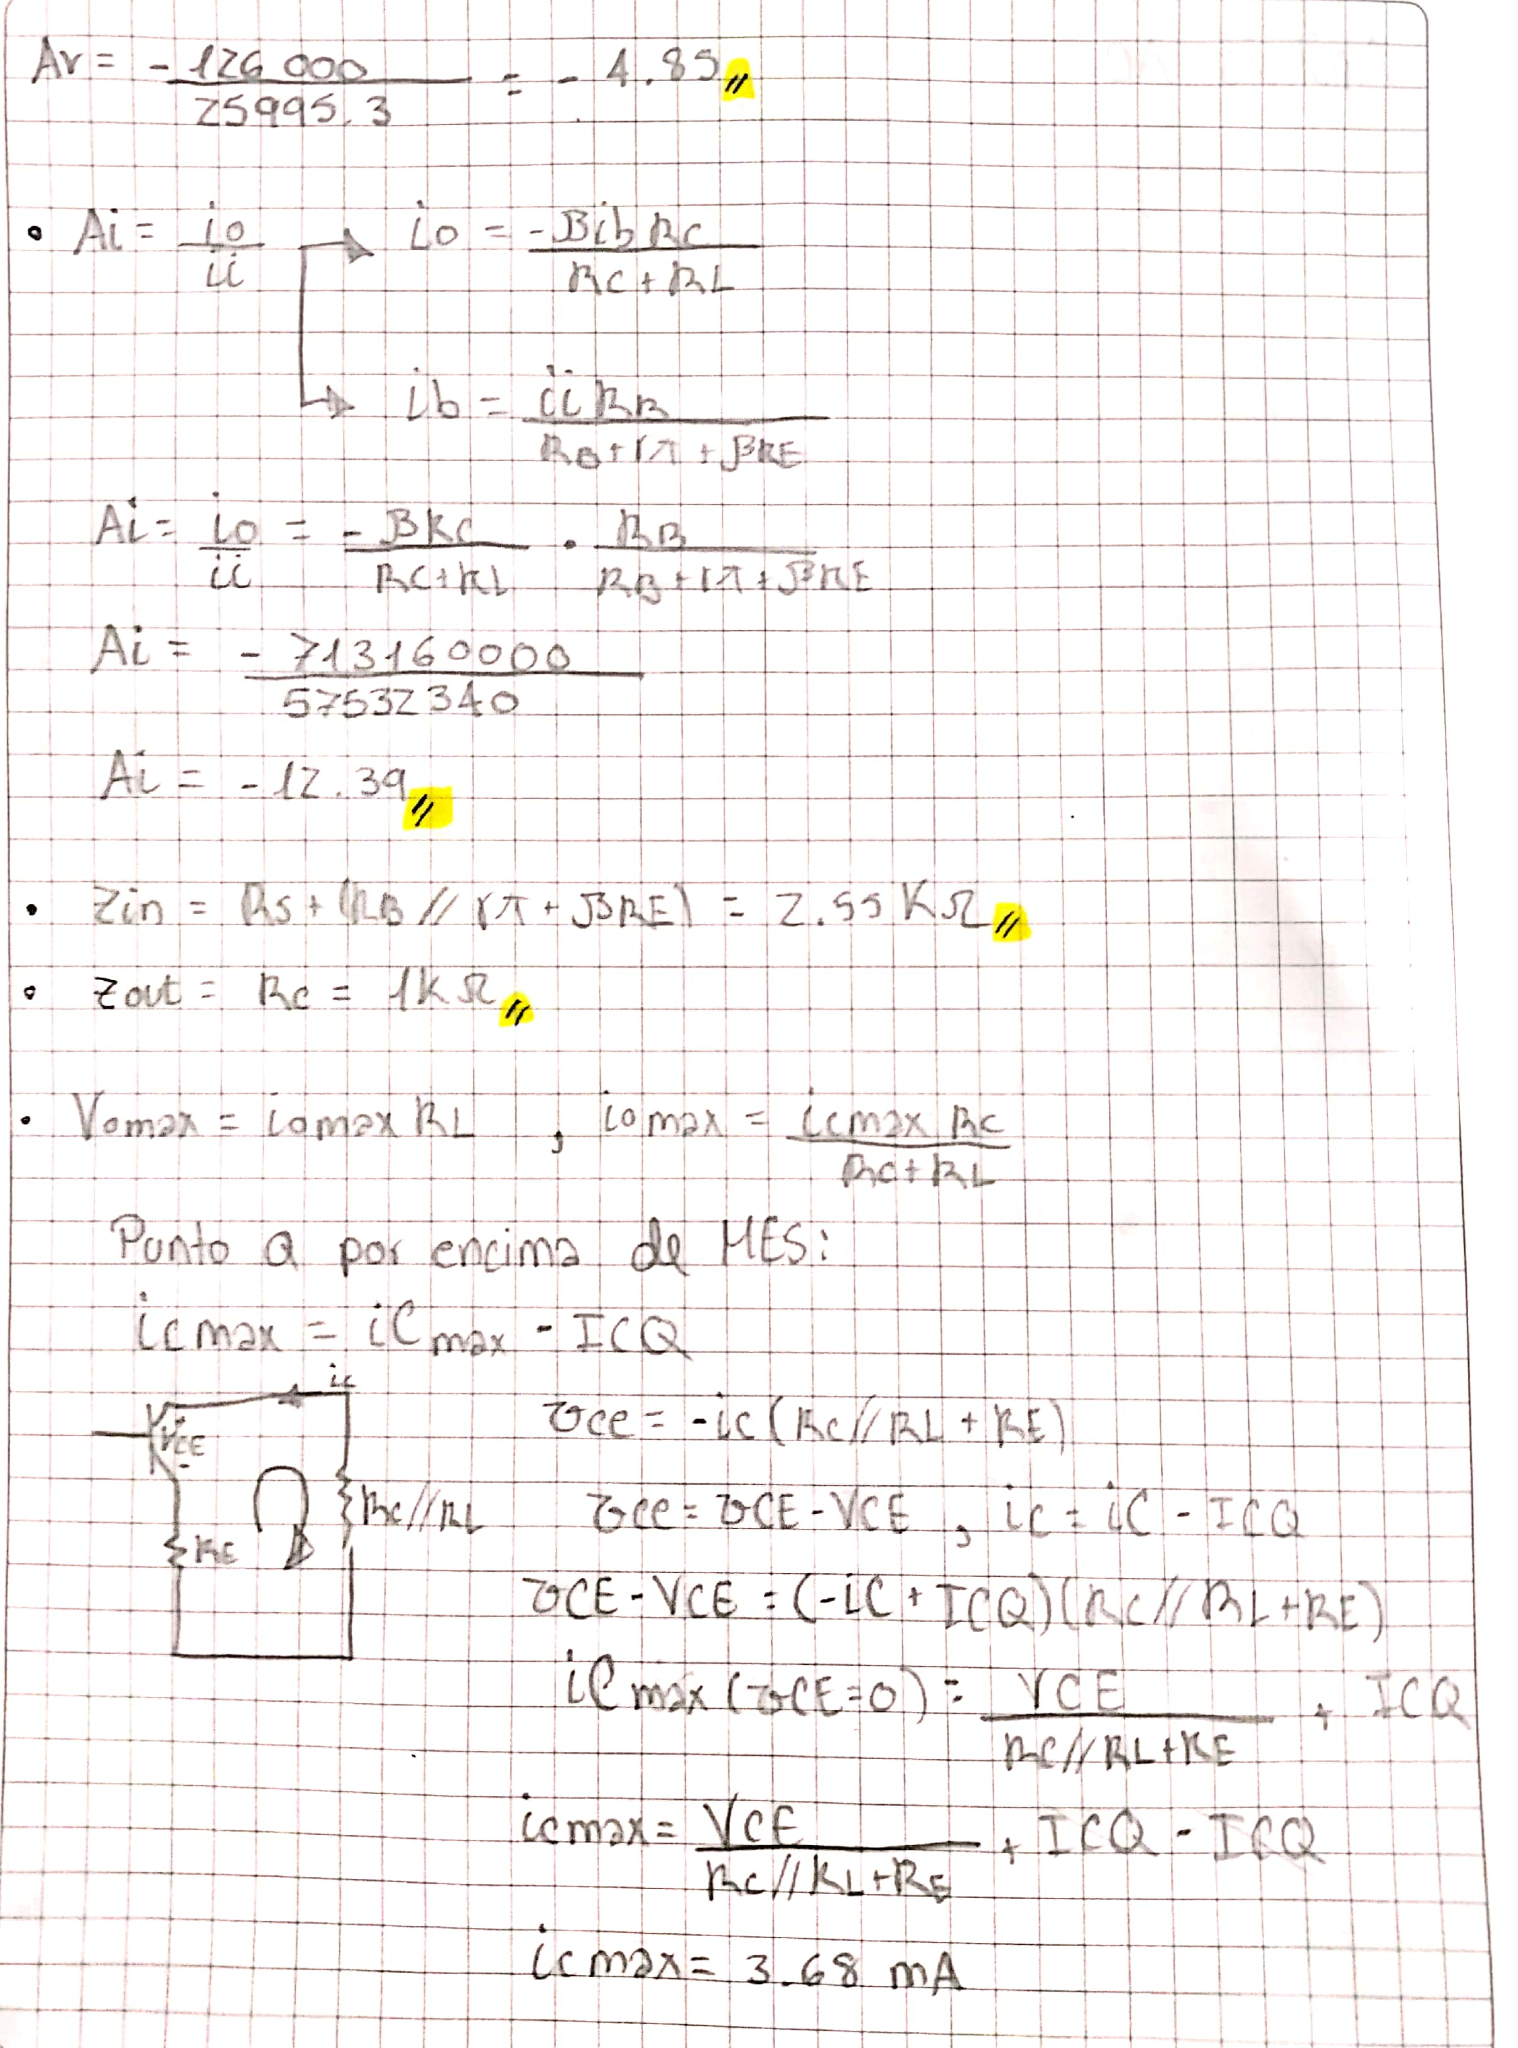 Av = - 126 000 / 25995.3 = - 4.85 //
• Ai = io / ii → io = - βib RC / RC + RL
→ ib = ii RB / RB + rπ + βRE
Ai = io / ii = - βRC / RC + RL · RB / RB + rπ + βRE
Ai = - 713160000 / 57532340
Ai = - 12.39 //
• Zin = RS + (RB // rπ + βRE) = 2.55 KΩ //
• Zout = RC = 1KΩ //
• Vomax = iomax RL , iomax = icmax RC / RC + RL
Punto Q por encima de MES:
icmax = iCmax - ICQ
ic
+ VCE -
RC//RL
RE
vce = -ic (RC//RL + RE)
vce = vCE - VCE , ic = iC - ICQ
vCE - VCE = (-iC + ICQ)(RC//RL + RE)
iCmax (vCE=0) = VCE / RC//RL+RE + ICQ
icmax = VCE / RC//RL+RE + ICQ - ICQ
icmax = 3.68 mA